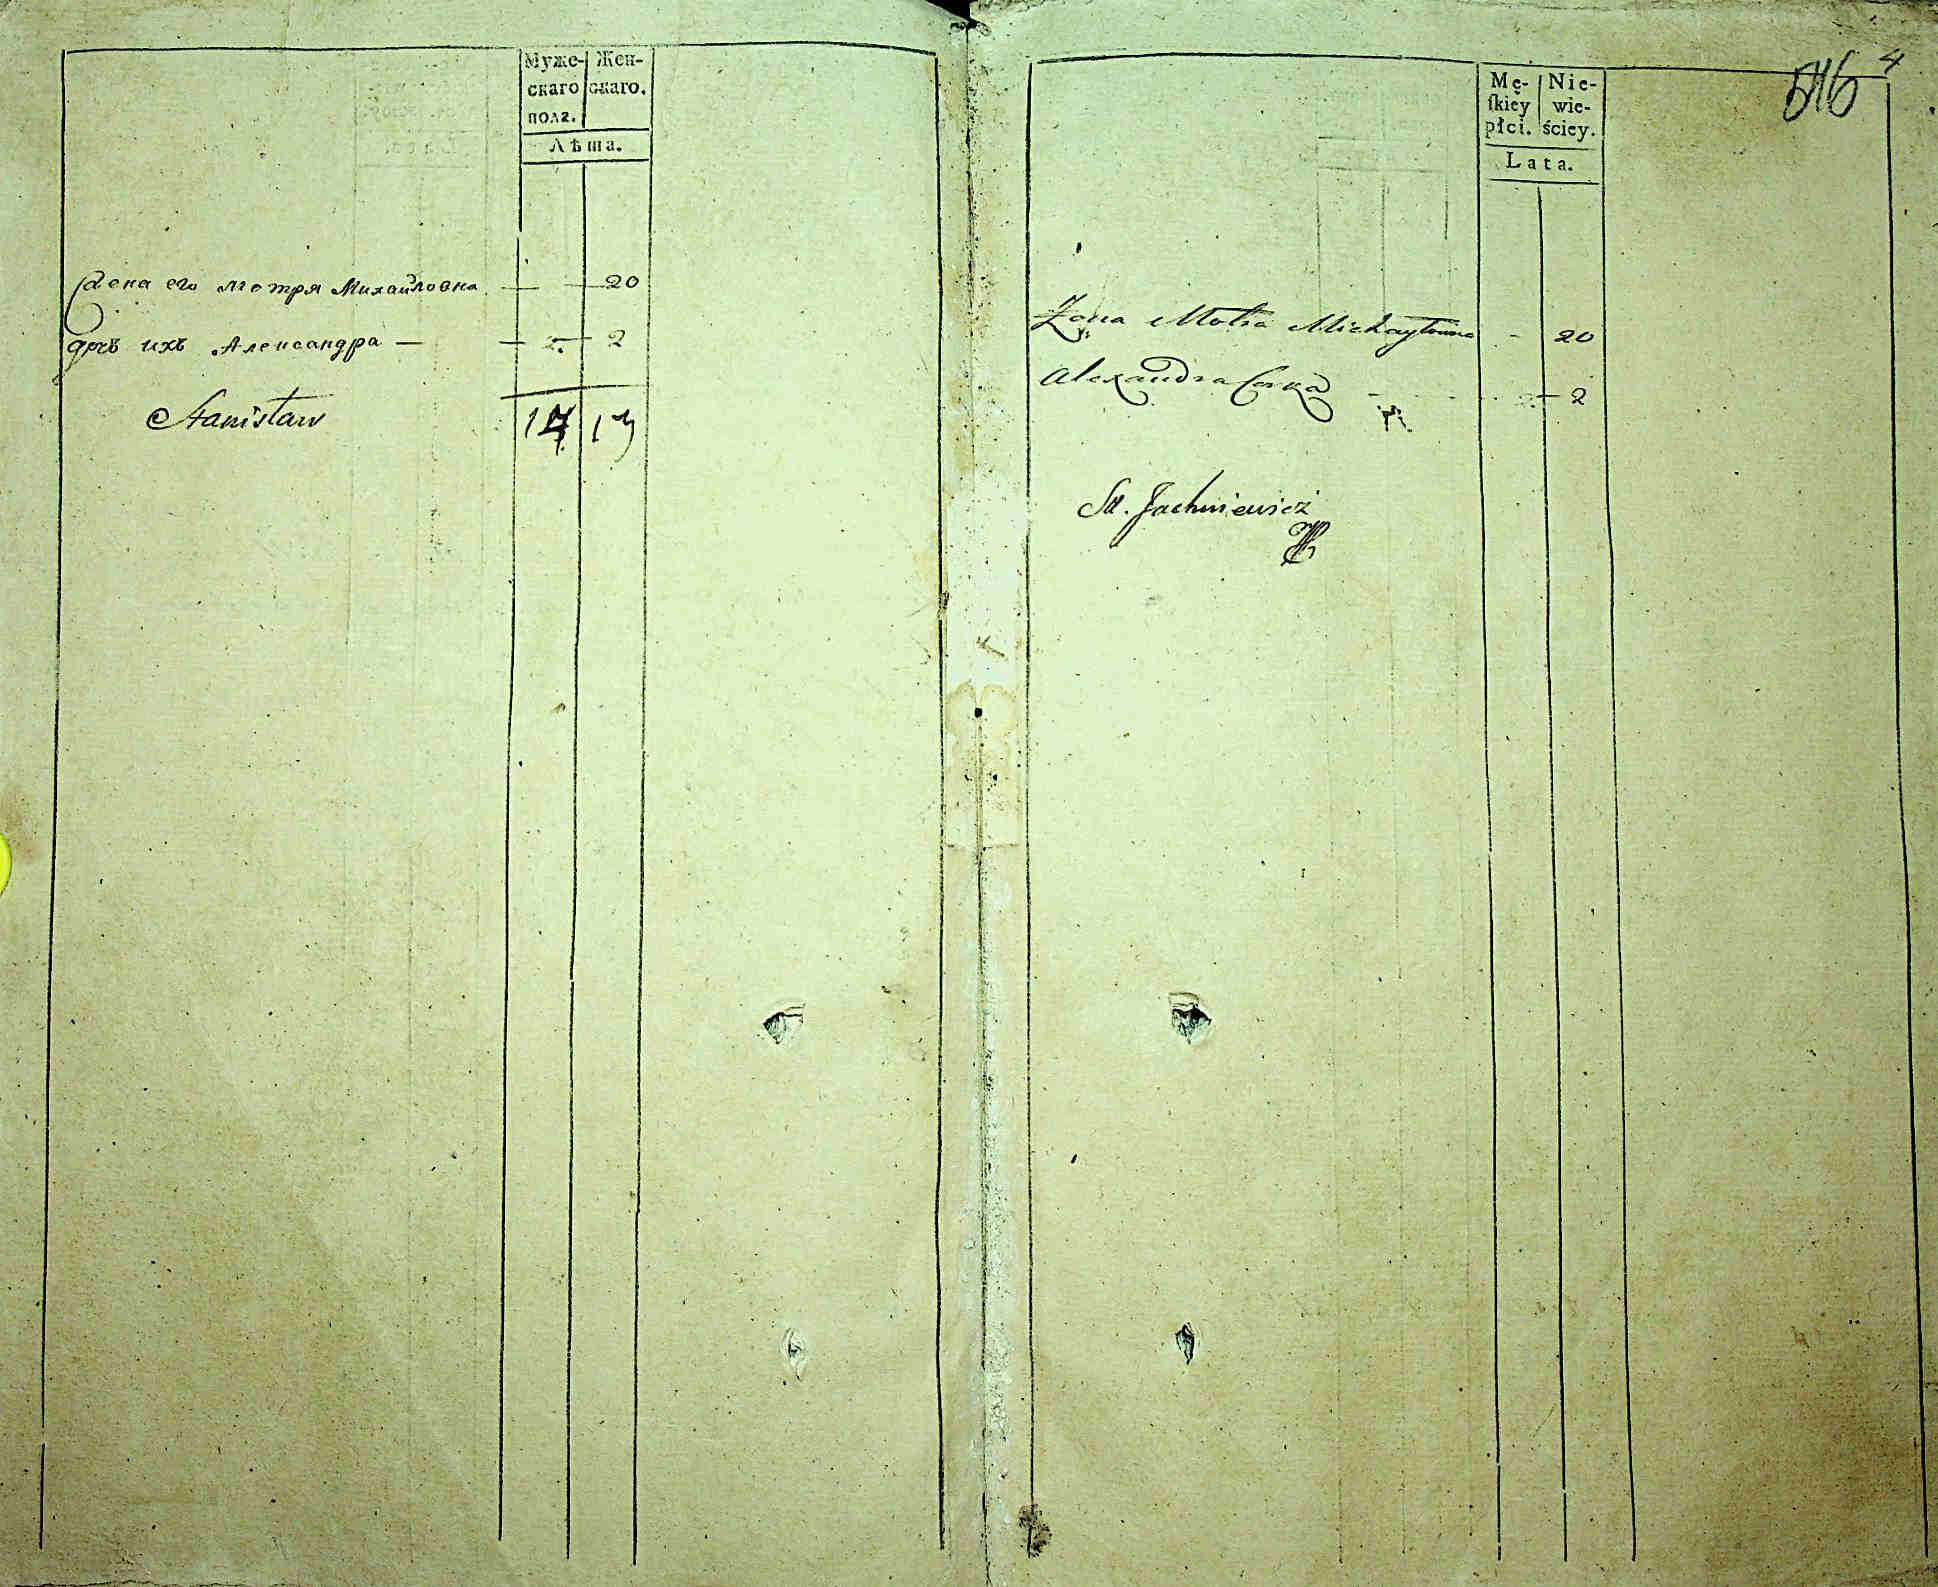 Муже-
скаго
полъ.
Жен-
скаго.
Лѣта.
Жена его Мотря Михайловна — 20
дочь ихъ Александра — 2
Stanisław
17 13
Mę-
skiey
płci.
Nie-
wie-
ściey.
Lata.
516
4
Żona Motra Michayłowna - 20
Alexandra Corka 2
St. Jachniewicz